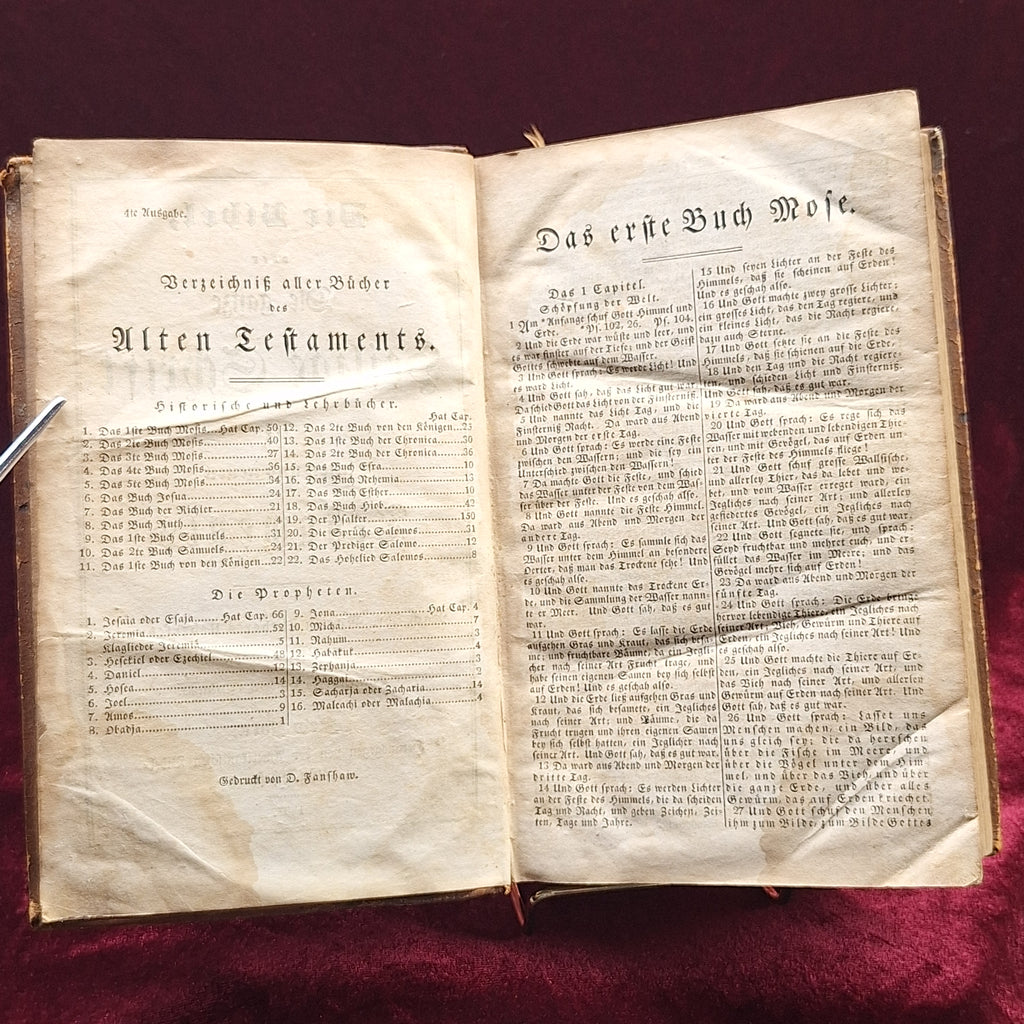 4te Ausgabe.
Verzeichniß aller Bücher
des
Alten Testaments.
Historische und Lehrbücher.
Hat Cap.
1. Das 1ste Buch Mosis....Hat Cap. 50
2. Das 2te Buch Mosis..........40
3. Das 3te Buch Mosis..........27
4. Das 4te Buch Mosis..........36
5. Das 5te Buch Mosis..........34
6. Das Buch Josua..........24
7. Das Buch der Richter..........21
8. Das Buch Ruth..........4
9. Das 1ste Buch Samuels..........31
10. Das 2te Buch Samuels..........24
11. Das 1ste Buch von den Königen....22
12. Das 2te Buch von den Königen...25
13. Das 1ste Buch der Chronica......30
14. Das 2te Buch der Chronica......36
15. Das Buch Esra..........10
16. Das Buch Nehemia..........13
17. Das Buch Esther..........10
18. Das Buch Hiob..........42
19. Der Psalter..........150
20. Die Sprüche Salomos..........31
21. Der Prediger Salomo..........12
22. Das Hohelied Salomos..........8
Die Propheten.
1. Jesaia oder Esaja....Hat Cap. 66
2. Jeremia..........52
Klaglieder Jeremiä..........5
3. Hesekiel oder Ezechiel..........48
4. Daniel..........12
5. Hosea..........14
6. Joel..........3
7. Amos..........9
8. Obadja..........1
9. Jona..........Hat Cap. 4
10. Micha..........7
11. Nahum..........3
12. Habakuk..........3
13. Zephanja..........3
14. Haggai..........2
15. Sacharja oder Zacharia..........14
16. Maleachi oder Malachia..........4
Gedruckt von D. Fanshaw.
Das erste Buch Mose.
Das 1 Capitel.
Schöpfung der Welt.
1 Am *Anfange schuf Gott Himmel und
Erde. *Ps. 102, 26. Ps. 104.
2 Und die Erde war wüste und leer, und
es war finster auf der Tiefe; und der Geist
Gottes schwebte auf dem Wasser.
3 Und Gott sprach: Es werde Licht! Und
es ward Licht.
4 Und Gott sah, daß das Licht gut war.
Da schied Gott das Licht von der Finsterniß.
5 Und nannte das Licht Tag, und die
Finsterniß Nacht. Da ward aus Abend
und Morgen der erste Tag.
6 Und Gott sprach: Es werde eine Feste
zwischen den Wassern; und die sey ein
Unterschied zwischen den Wassern!
7 Da machte Gott die Feste, und schied
das Wasser unter der Feste von dem Was-
ser über der Feste. Und es geschah also.
8 Und Gott nannte die Feste Himmel.
Da ward aus Abend und Morgen der
andere Tag.
9 Und Gott sprach: Es sammle sich das
Wasser unter dem Himmel an besondere
Oerter, daß man das Trockene sehe! Und
es geschah also.
10 Und Gott nannte das Trockene Er-
de, und die Sammlung der Wasser nann-
te er Meer. Und Gott sah, daß es gut
war.
11 Und Gott sprach: Es lasse die Erde
aufgehen Gras und Kraut, das sich besa-
me; und fruchtbare Bäume, da ein Jegli-
cher nach seiner Art Frucht trage, und
habe seinen eigenen Samen bey sich selbst
auf Erden! Und es geschah also.
12 Und die Erde ließ aufgehen Gras und
Kraut, das sich besamete, ein Jegliches
nach seiner Art; und Bäume, die da
Frucht trugen und ihren eigenen Samen
bey sich selbst hatten, ein Jeglicher nach
seiner Art. Und Gott sah, daß es gut war.
13 Da ward aus Abend und Morgen der
dritte Tag.
14 Und Gott sprach: Es werden Lichter
an der Feste des Himmels, die da scheiden
Tag und Nacht, und geben Zeichen, Zei-
ten, Tage und Jahre.
15 Und seyen Lichter an der Feste des
Himmels, daß sie scheinen auf Erden!
Und es geschah also.
16 Und Gott machte zwey große Lichter:
ein großes Licht, das den Tag regiere, und
ein kleines Licht, das die Nacht regiere,
dazu auch Sterne.
17 Und Gott setzte sie an die Feste des
Himmels, daß sie schienen auf die Erde,
18 Und den Tag und die Nacht regiere-
ten, und schieden Licht und Finsterniß.
Und Gott sah, daß es gut war.
19 Da ward aus Abend und Morgen der
vierte Tag.
20 Und Gott sprach: Es rege sich das
Wasser mit webenden und lebendigen Thie-
ren, und mit Gevögel, das auf Erden un-
ter der Feste des Himmels fliege!
21 Und Gott schuf große Wallfische,
und allerley Thier, das da lebet und we-
bet, und vom Wasser erreget ward, ein
Jegliches nach seiner Art; und allerley
gefiedertes Gevögel, ein Jegliches nach
seiner Art. Und Gott sah, daß es gut war.
22 Und Gott segnete sie, und sprach:
Seyd fruchtbar und mehret euch, und er-
füllet das Wasser im Meere; und das
Gevögel mehre sich auf Erden!
23 Da ward aus Abend und Morgen der
fünfte Tag.
24 Und Gott sprach: Die Erde bringe
hervor lebendige Thiere, ein Jegliches nach
seiner Art, Vieh, Gewürm und Thiere auf
Erden, ein Jegliches nach seiner Art! Und
es geschah also.
25 Und Gott machte die Thiere auf Er-
den, ein Jegliches nach seiner Art, und
das Vieh nach seiner Art, und allerley
Gewürm auf Erden nach seiner Art. Und
Gott sah, daß es gut war.
26 Und Gott sprach: Lasset uns
Menschen machen, ein Bild, das
uns gleich sey; die da herrschen
über die Fische im Meere, und
über die Vögel unter dem Him
mel, und über das Vieh, und über
die ganze Erde, und über alles
Gewürm, das auf Erden kriechet.
27 Und Gott schuf den Menschen
ihm zum Bilde, zum Bilde Gottes